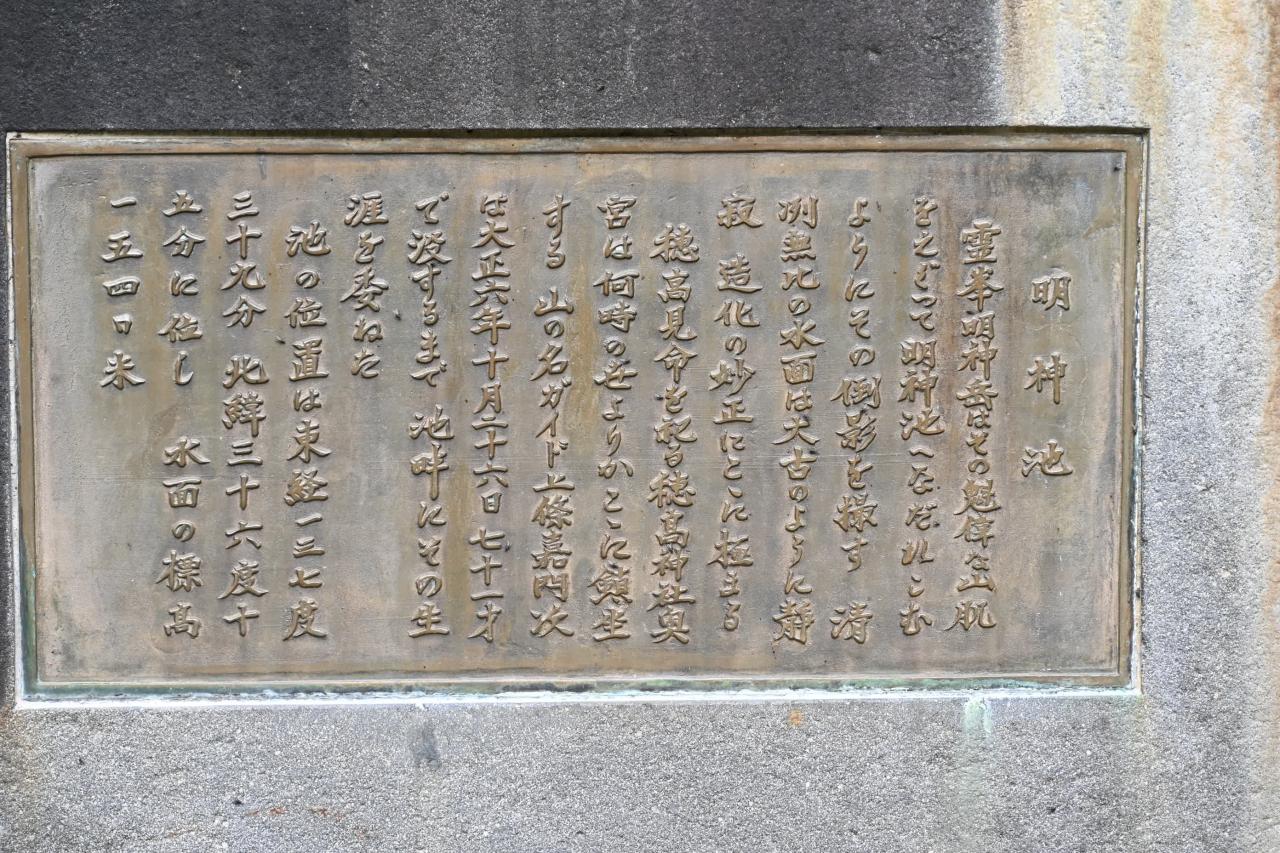 明神池
霊峯明神岳はその魁偉な山肌
をえぐって明神池へなだれこむ
ようにその倒影を操す 清
冽無比の水面は太古のように静
寂 造化の妙正にここに極まる
穂高見命を祀る穂高神社奥
宮は何時の世よりかこゝに鎮坐
する 山の名ガイド上條嘉門次
は大正六年十月二十六日七十一才
で没するまで 池畔にその生
涯を委ねた
池の位置は東経一三七度
三十九分 北緯三十六度十
五分に位し 水面の標高
一五四〇米